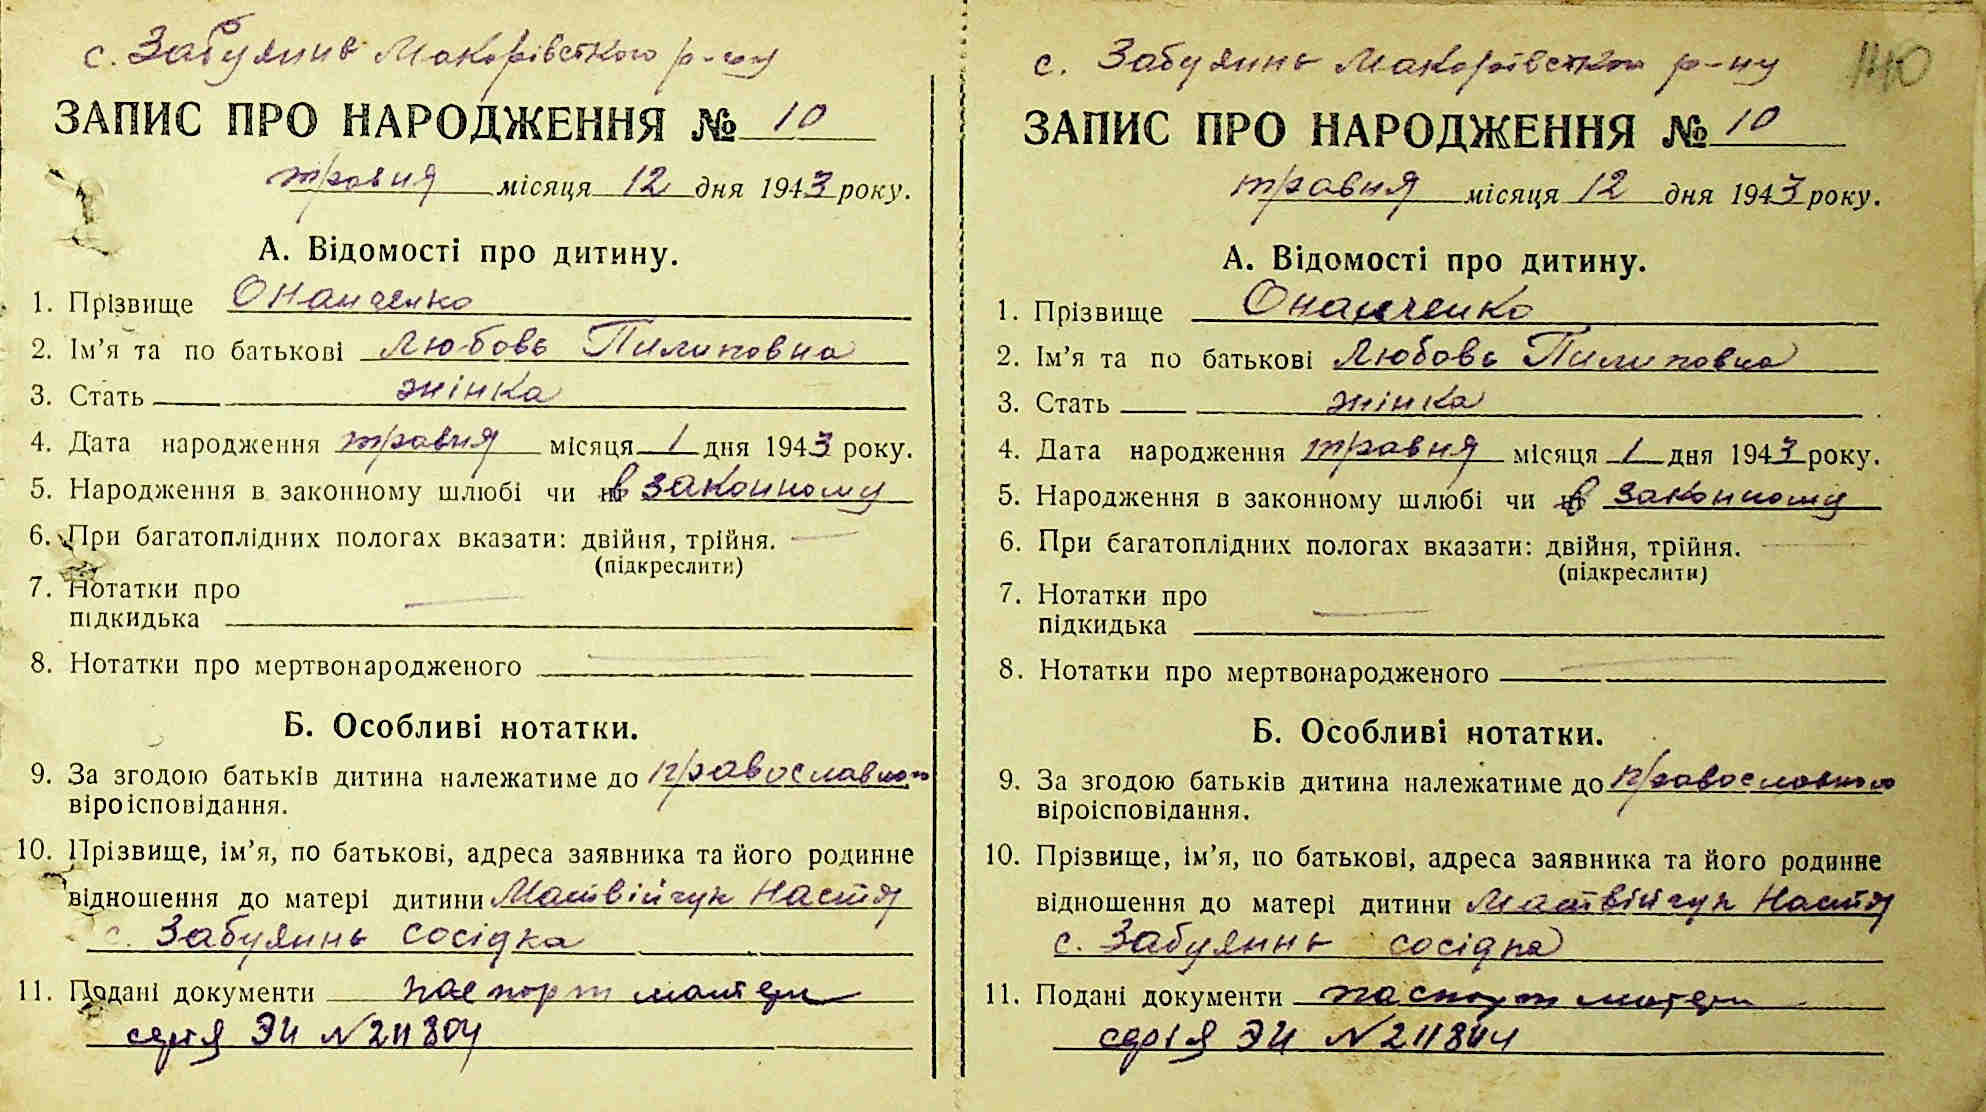 с. Забуяння Макарівського р-ну
ЗАПИС ПРО НАРОДЖЕННЯ № 10
травня місяця 12 дня 1943 року.
А. Відомості про дитину.
1. Прізвище Онанченко
2. Ім’я та по батькові Любовь Пилиповна
3. Стать жінка
4. Дата народження травня місяця 1 дня 1943 року.
5. Народження в законному шлюбі чи в законному
6. При багатоплідних пологах вказати: двійня, трійня. —
(підкреслити)
7. Нотатки про
підкидька —
8. Нотатки про мертвонародженого —
Б. Особливі нотатки.
9. За згодою батьків дитина належатиме до православного
віроісповідання.
10. Прізвище, ім’я, по батькові, адреса заявника та його родинне
відношення до матері дитини Матвійчук Настя
с. Забуяннь сосідка
11. Подані документи паспорт матери
серія ЭИ N 211804
с. Забуяннь Макарівського р-ну
140
ЗАПИС ПРО НАРОДЖЕННЯ № 10
травня місяця 12 дня 1943 року.
А. Відомості про дитину.
1. Прізвище Онанченко
2. Ім’я та по батькові Любовь Пилиповна
3. Стать жінка
4. Дата народження травня місяця 1 дня 1943 року.
5. Народження в законному шлюбі чи в законному
6. При багатоплідних пологах вказати: двійня, трійня. —
(підкреслити)
7. Нотатки про
підкидька —
8. Нотатки про мертвонародженого —
Б. Особливі нотатки.
9. За згодою батьків дитина належатиме до православного
віроісповідання.
10. Прізвище, ім’я, по батькові, адреса заявника та його родинне
відношення до матері дитини Матвійчук Настя
с. Забуяннь сосідка
11. Подані документи паспорт матери
серія ЭИ N